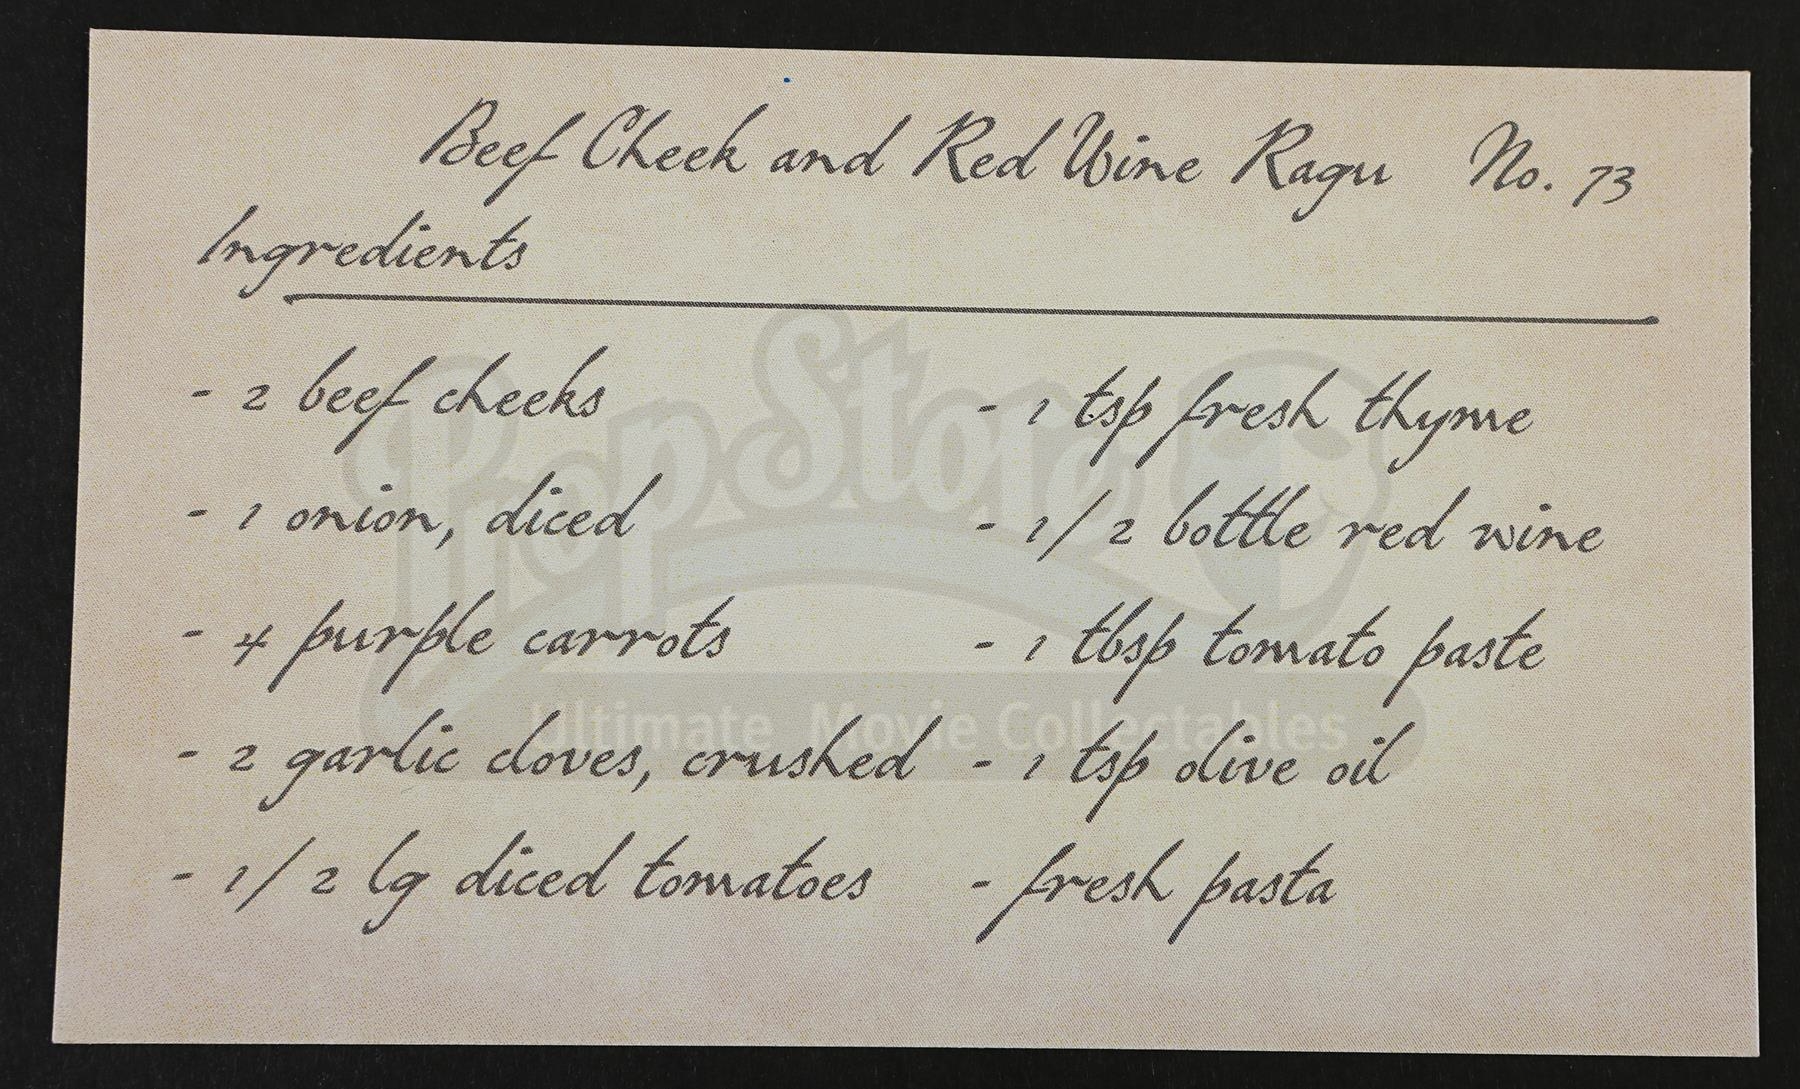 Beef Cheek and Red Wine Ragu No. 73
Ingredients
- 2 beef cheeks
- 1 onion, diced
- 4 purple carrots
- 2 garlic cloves, crushed
- 1/2 lg diced tomatoes
- 1 tsp fresh thyme
- 1/2 bottle red wine
- 1 tbsp tomato paste
- 1 tsp olive oil
- fresh pasta
PropStore
Ultimate Movie Collectables